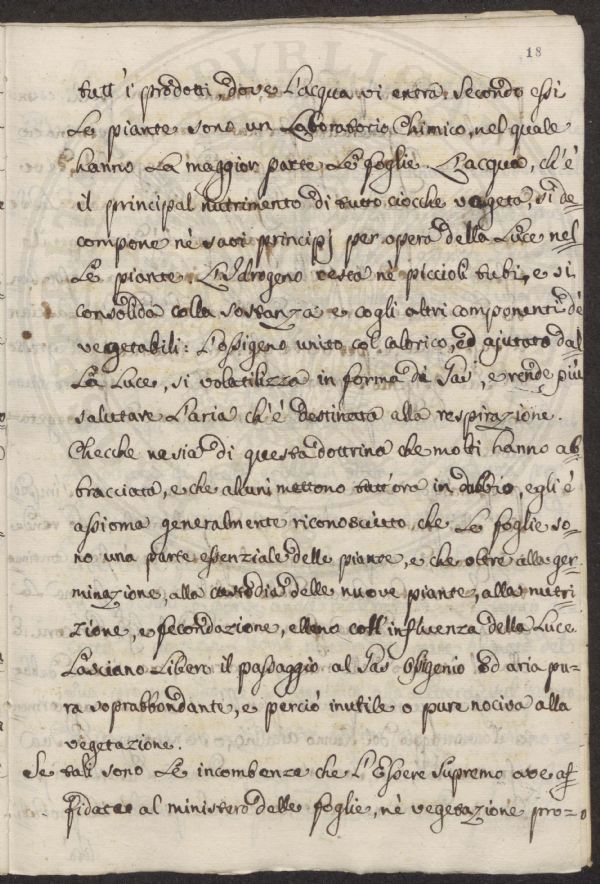 18
tutt' i prodotti, dove L'acqua vi entra. Secondo essi
Le piante sono un Laboratorio Chimico, nel quale
hanno La maggior parte Le foglie. L'acqua, ch'è
il principal nutrimento di tutto ciocche vegeta, si de=
compone nè suoi principj per opera della Luce nel=
Le piante. L'Idrogeno resta nè piccioli tubi, e si
consolida colla sostanza e cogli altri componenti dè
vegetabili: L'ossigeno unito col calorico, ed ajutato dal=
La Luce, si volatilizza in forma di Gas, e rende più
salutare L'aria ch'è destinata alla respirazione.
Checche ne sia di questa dottrina che molti hanno ab=
bracciata, e che alcuni mettono tutt'ora in dubbio, egli è
assioma generalmente riconosciuto, che Le foglie so=
no una parte essenziale delle piante, e che oltre alla ger=
minazione, alla custodia delle nuove piante, alla nutri=
zione, e fecondazione, elleno coll'influenza della Luce
Lasciano Libero il passaggio al Gas Ossigenio od aria pu=
ra soprabbondante, e perciò inutile o pure nociva alla
vegetazione.
Se tali sono Le incombenze che L'Essere Supremo ave af=
fidate al ministero delle foglie, nè vegetazione pro=